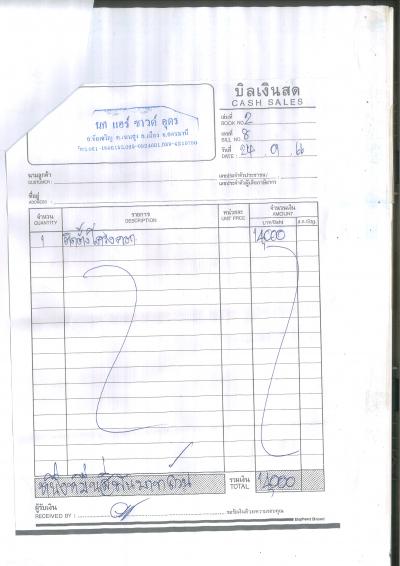 บิลเงินสด
CASH SALES
นก แอร์ ซาวด์ อุดร
เล่มที่
BOOK NO. 2
เลขที่
BILL NO. 8
วันที่
DATE 24 0.9 66
นามลูกค้า
CUSTOMER
ที่อยู่
ADDRESS
เลขประจำตัวประชาชน/
เลขประจำตัวผู้เสียภาษีอากร
จำนวน
QUANTITY
รายการ
DESCRIPTION
หน่วยละ
UNIT PRICE
จำนวนเงิน
AMOUNT
บาท/Baht ส.ต./Stg.
1 14,000
หนึ่งหมื่นสี่พันบาทถ้วน
รวมเงิน
TOTAL 14,000
ผู้รับเงิน
RECEIVED BY :
จะรับเงินด้วยความขอบคุณ
Elephant Brand